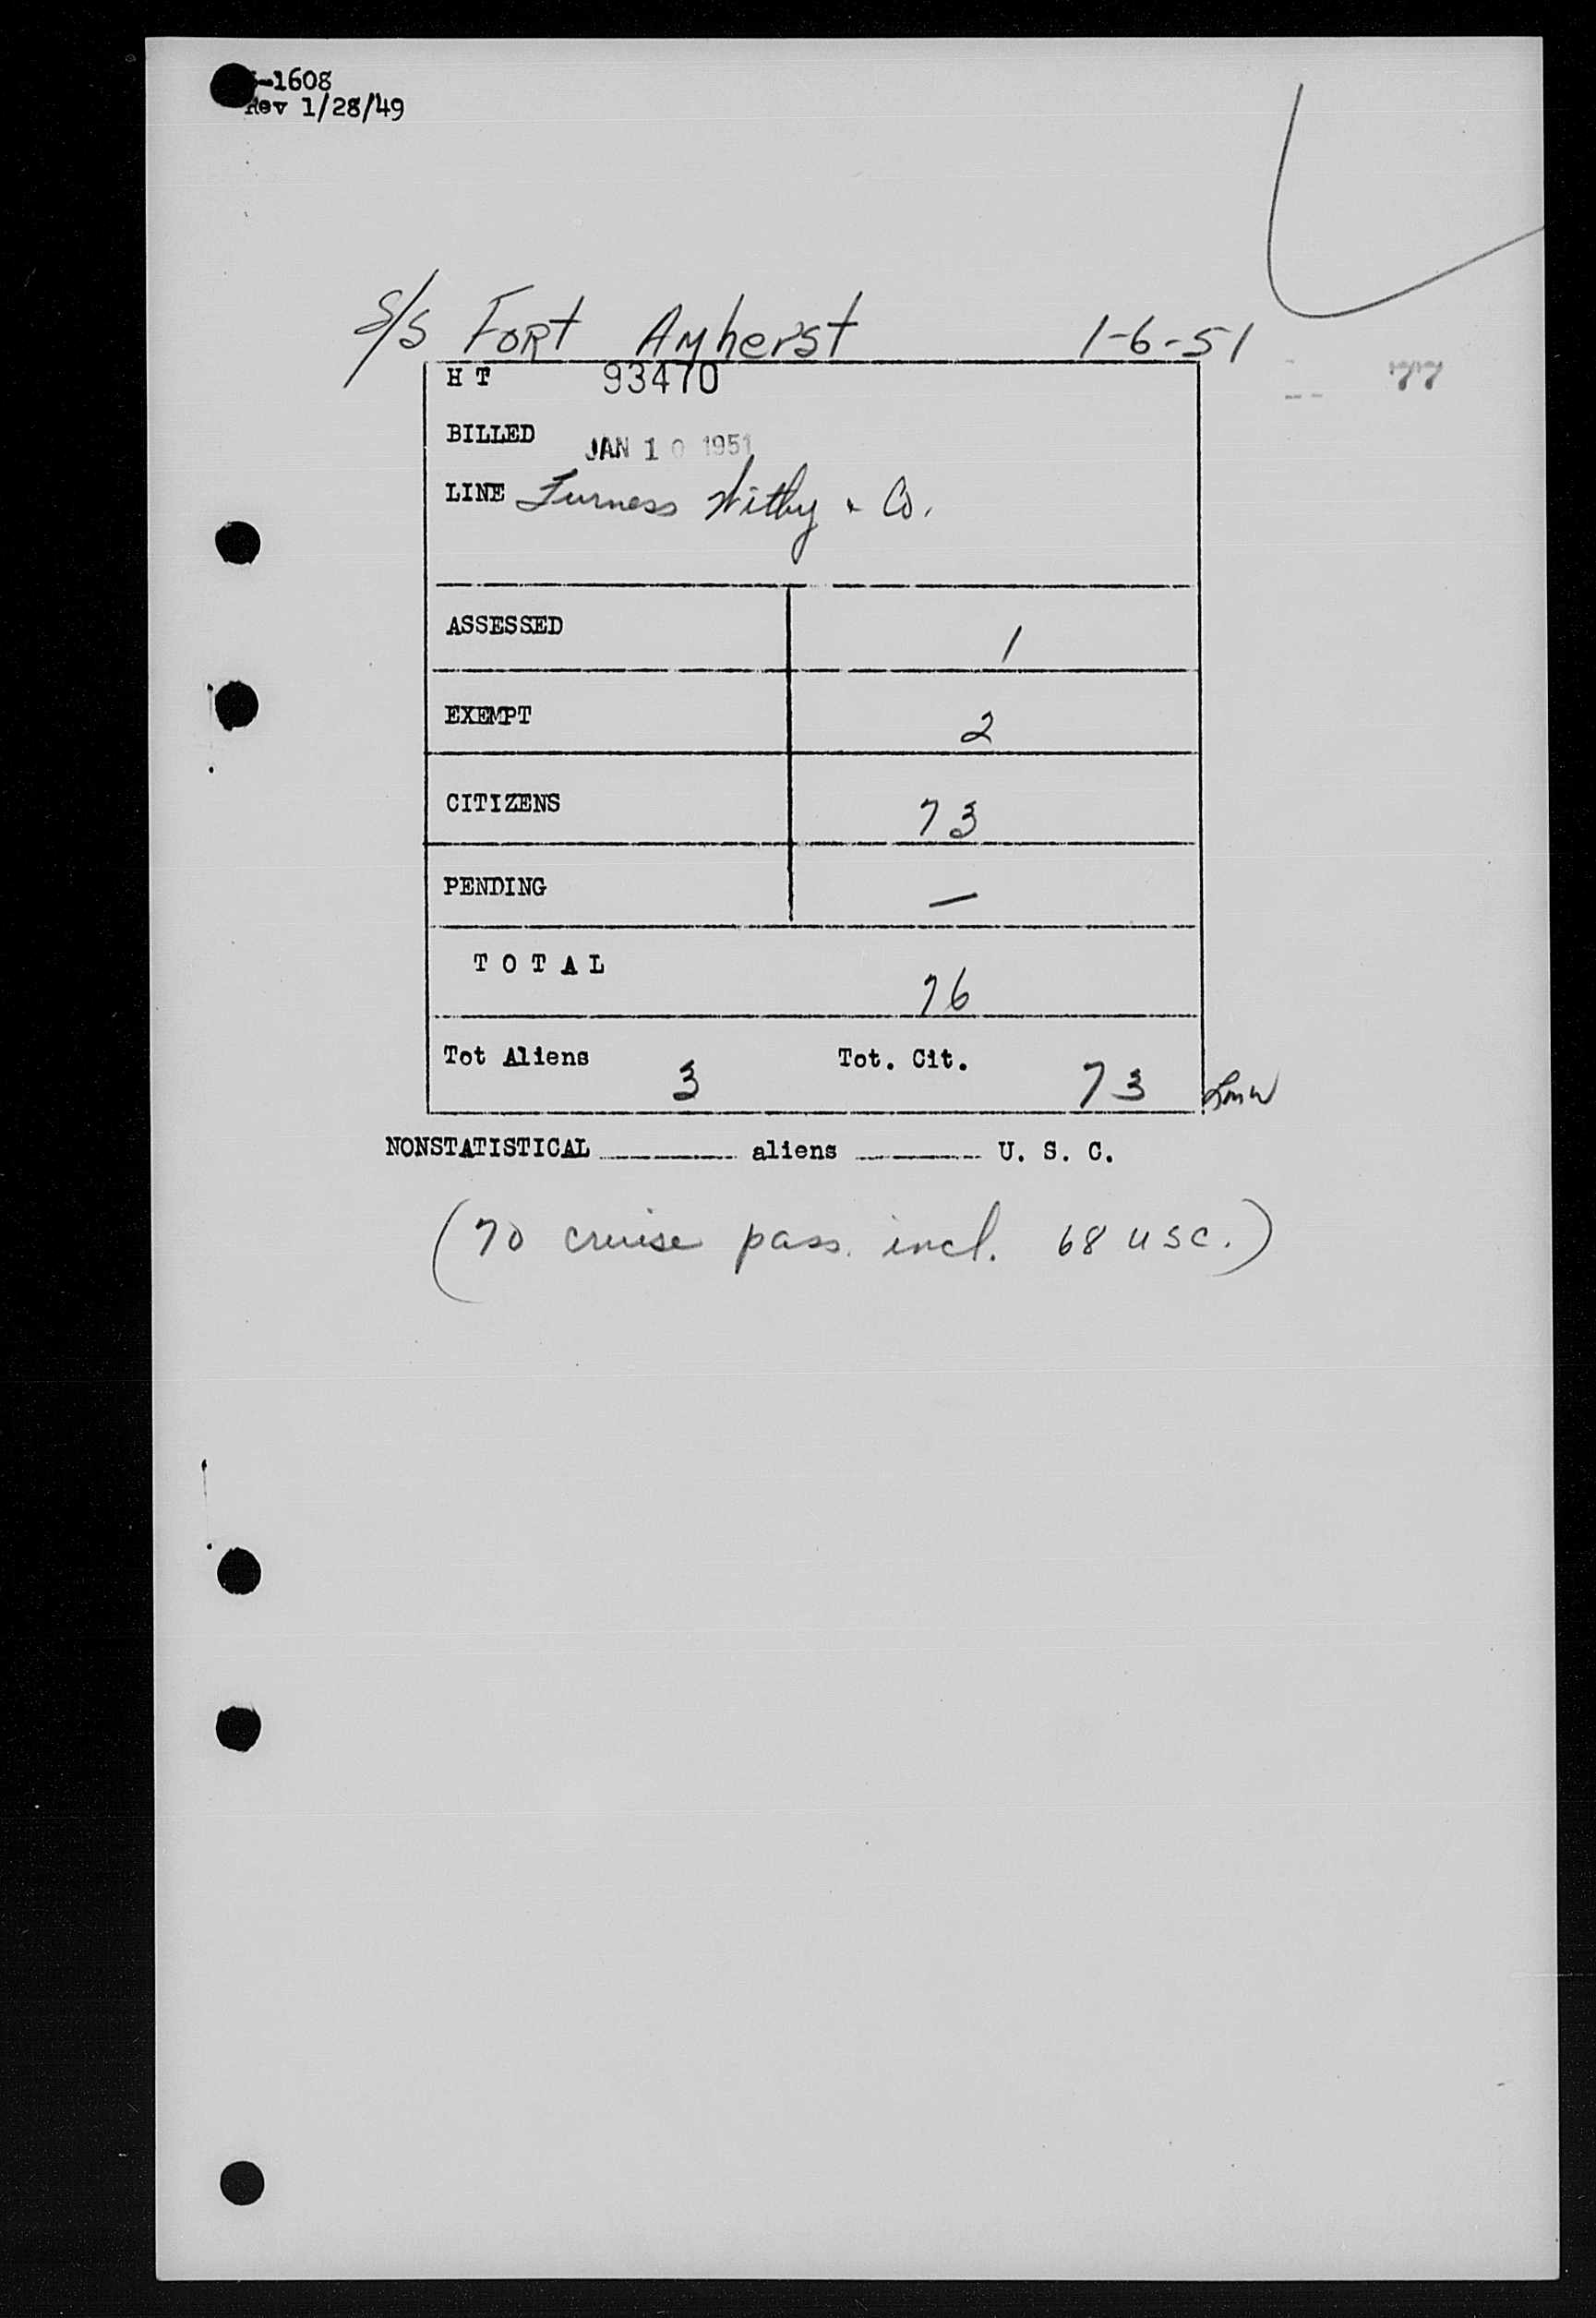 -1608
Rev 1/28/49
S/S Fort Amherst 1-6-51
77
H T 93470
BILLED JAN 10 1951
LINE Furness Withy & Co.
ASSESSED 1
EXEMPT 2
CITIZENS 73
PENDING —
T O T A L 76
Tot Aliens 3 Tot. Cit. 73
NONSTATISTICAL ______ aliens ______ U. S. C.
(70 cruise pass. incl. 68 USC.)